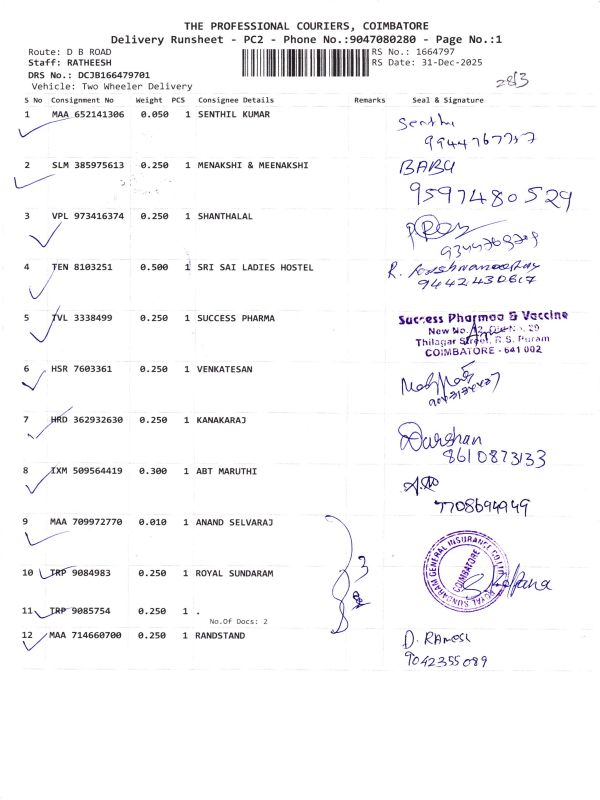 THE PROFESSIONAL COURIERS, COIMBATORE
Delivery Runsheet - PC2 - Phone No.:9047080280 - Page No.:1
Route: D B ROAD RS No.: 1664797
Staff: RATHEESH RS Date: 31-Dec-2025
DRS No.: DCJB166479701
Vehicle: Two Wheeler Delivery
28/3
S No Consignment No Weight PCS Consignee Details Remarks Seal & Signature
1 MAA 652141306 0.050 1 SENTHIL KUMAR
2 SLM 385975613 0.250 1 MENAKSHI & MEENAKSHI BABU
9597480529
3 VPL 973416374 0.250 1 SHANTHALAL
4 TEN 8103251 0.500 1 SRI SAI LADIES HOSTEL R.
9442430617
5 TVL 3338499 0.250 1 SUCCESS PHARMA Success Pharmaa & Vaccine
New No. 42, Old No. 29
Thilagar Street, R.S. Puram
COIMBATORE - 641 002
6 HSR 7603361 0.250 1 VENKATESAN
7 HRD 362932630 0.250 1 KANAKARAJ Darshan
8610873133
8 IXM 509564419 0.300 1 ABT MARUTHI
7708694949
9 MAA 709972770 0.010 1 ANAND SELVARAJ
10 TRP 9084983 0.250 1 ROYAL SUNDARAM ROYAL SUNDARAM GENERAL INSURANCE CO LTD
COIMBATORE
3
11 TRP 9085754 0.250 1 .
No.Of Docs: 2
12 MAA 714660700 0.250 1 RANDSTAND D. RAMESH
9042355089